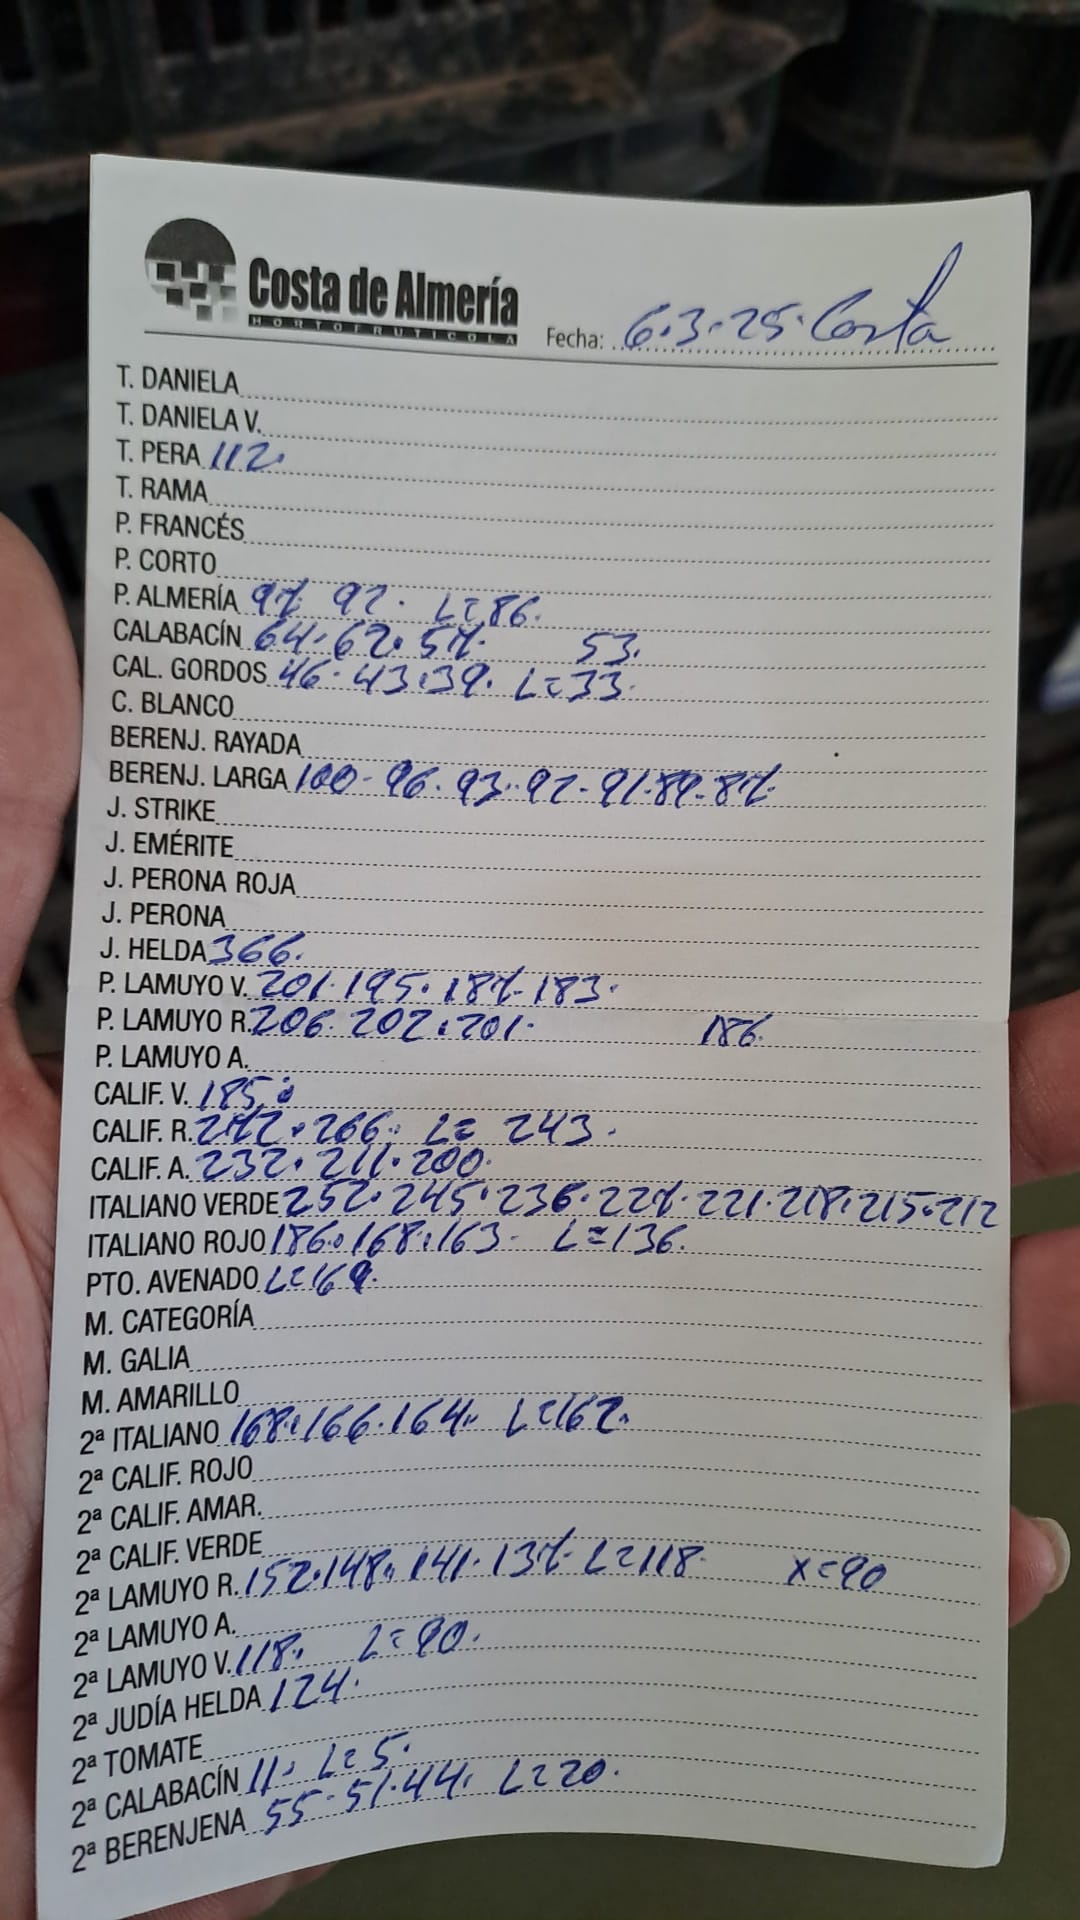 Costa de Almería
HORTOFRUTICOLA
Fecha: 6.3.25. Costa
T. DANIELA
T. DANIELA V.
T. PERA 112.
T. RAMA
P. FRANCÉS
P. CORTO
P. ALMERÍA 97 92. L=86.
CALABACÍN 64.62.57. 53.
CAL. GORDOS 46.43.39. L=33.
C. BLANCO
BERENJ. RAYADA
BERENJ. LARGA 100-96.93.92-91.89-87.
J. STRIKE
J. EMÉRITE
J. PERONA ROJA
J. PERONA
J. HELDA 366.
P. LAMUYO V. 201.195.187-183.
P. LAMUYO R. 206.202.201. 186.
P. LAMUYO A.
CALIF. V. 185.
CALIF. R. 272.266. L= 243.
CALIF. A. 232.211.200.
ITALIANO VERDE 252.245.236.227.221.218.215.212
ITALIANO ROJO 186.168.163. L=136.
PTO. AVENADO L=169.
M. CATEGORÍA
M. GALIA
M. AMARILLO
2ª ITALIANO 168.166.164. L=162.
2ª CALIF. ROJO
2ª CALIF. AMAR.
2ª CALIF. VERDE
2ª LAMUYO R. 152.148.141.137. L=118. X=90
2ª LAMUYO A.
2ª LAMUYO V. 118. L=90.
2ª JUDÍA HELDA 124.
2ª TOMATE
2ª CALABACÍN 11. L=5.
2ª BERENJENA 55.51.44. L=20.